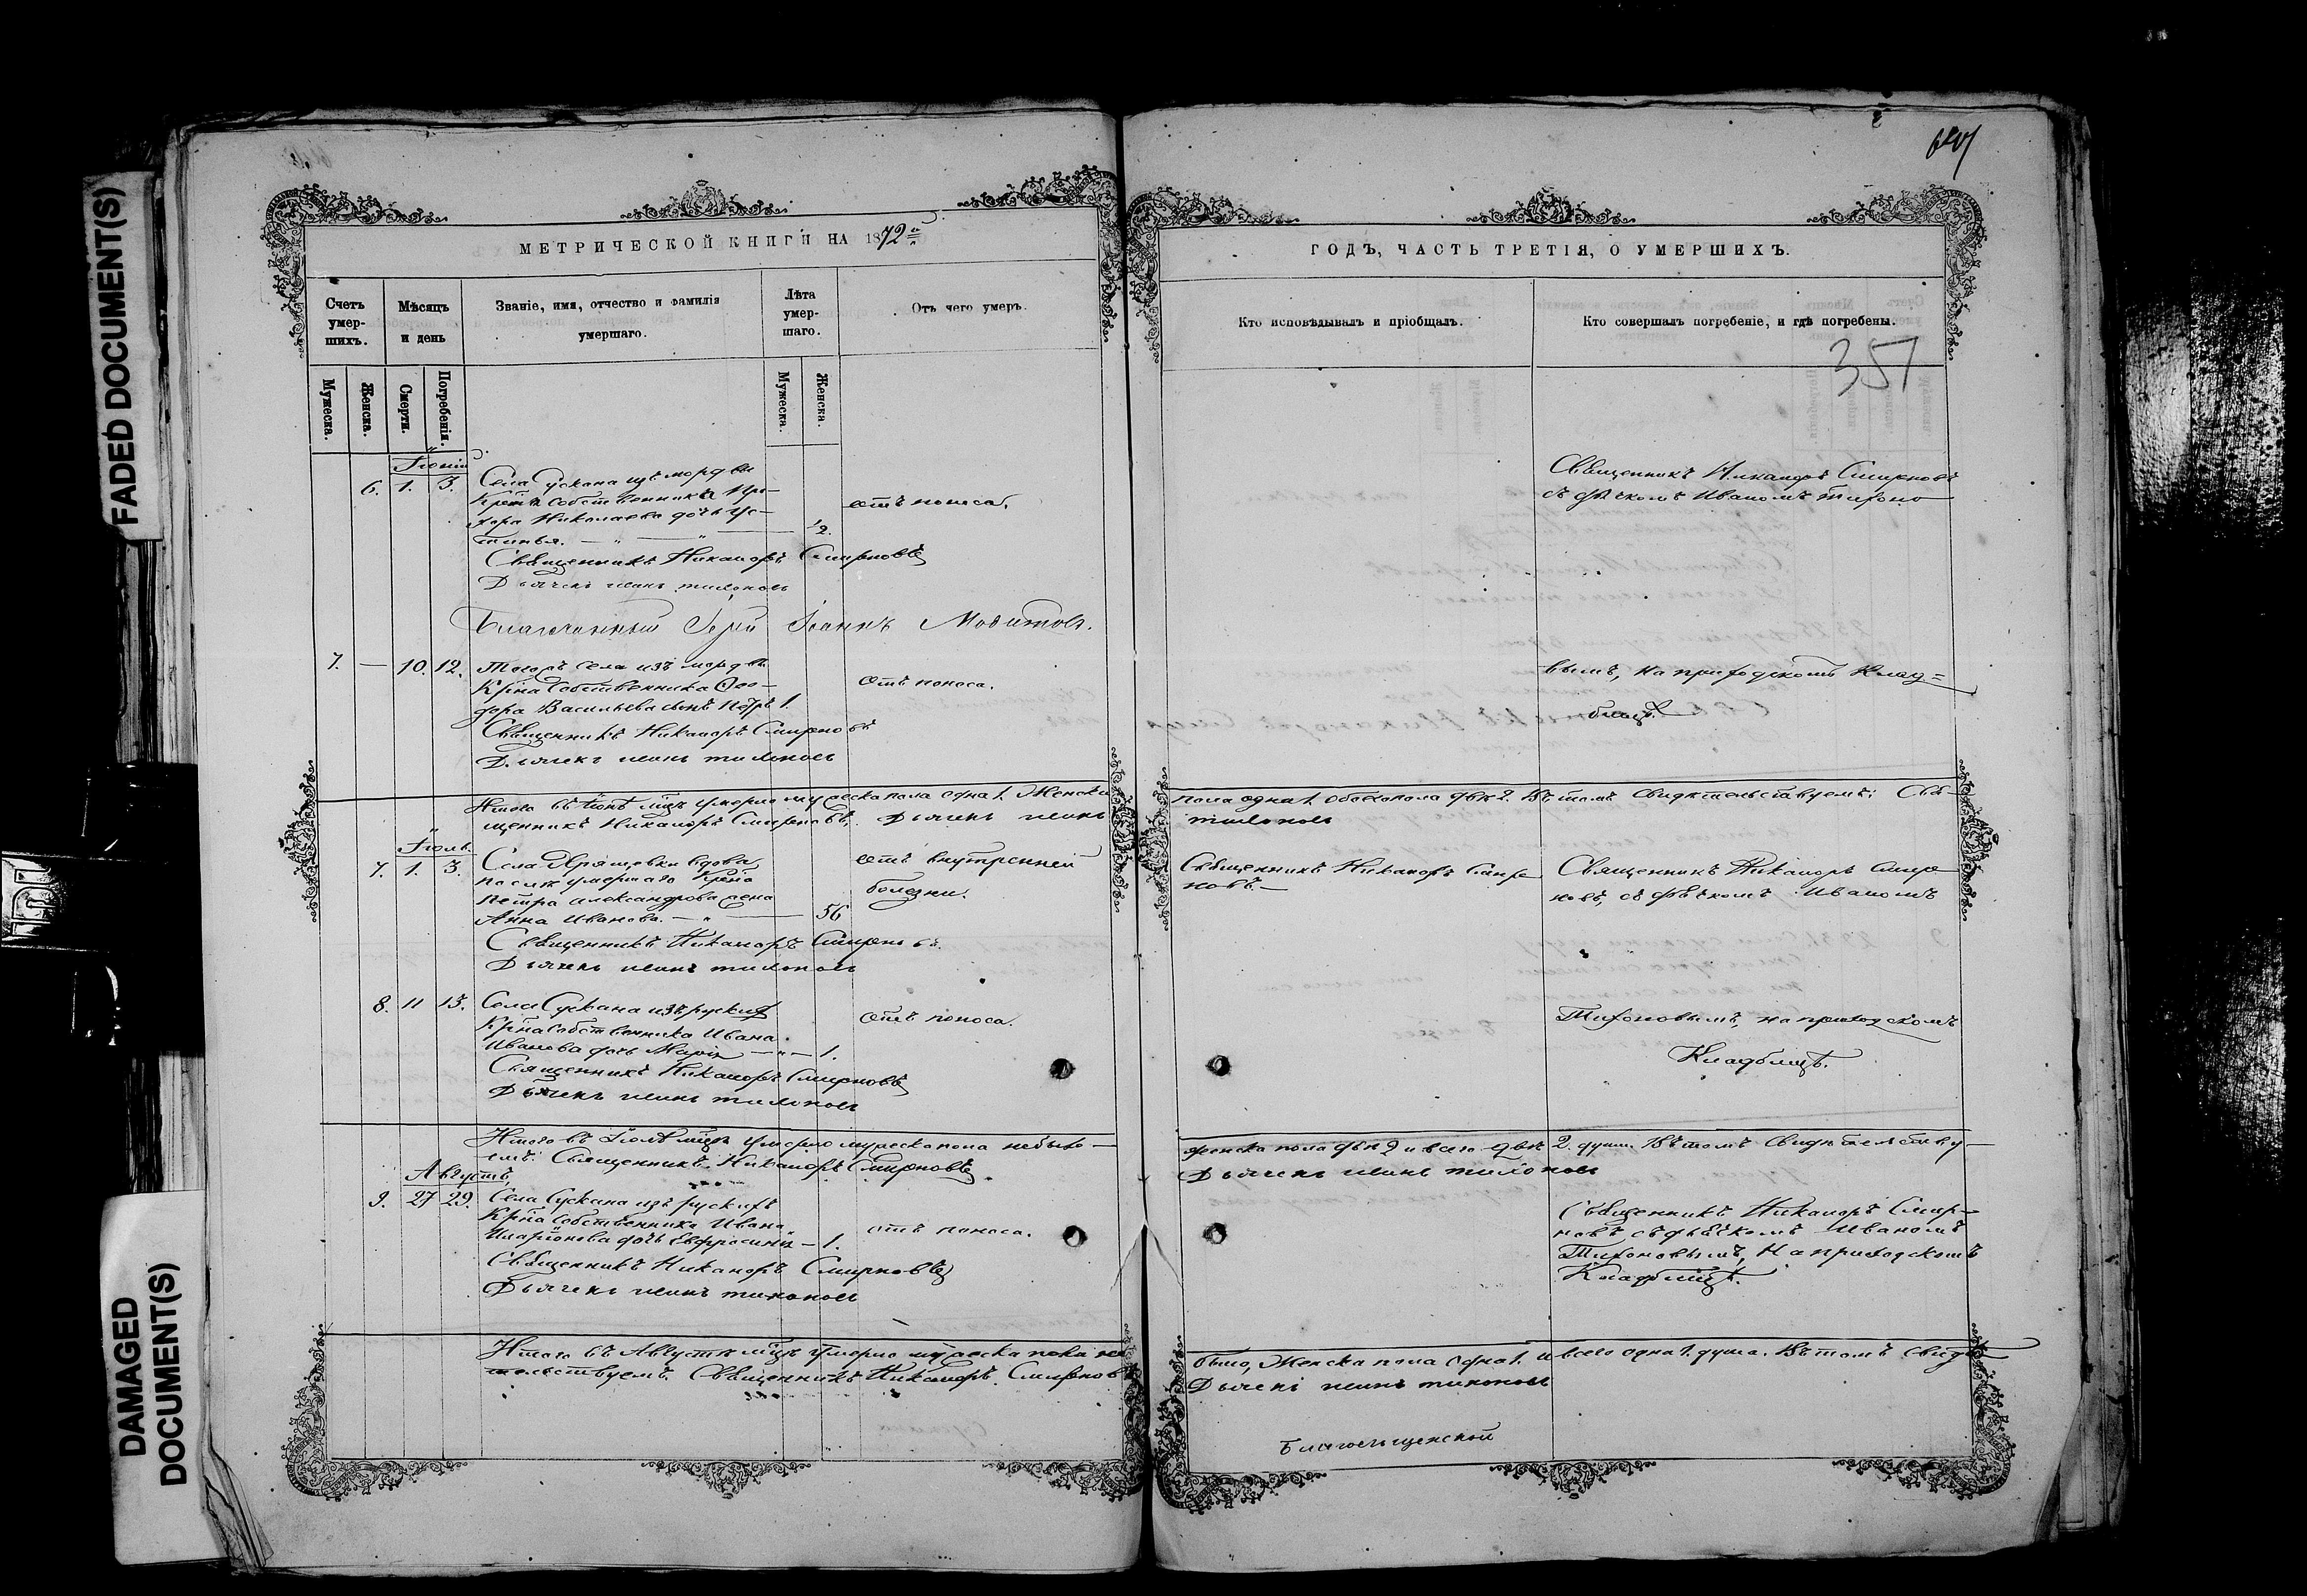 FADED DOCUMENT(S)
DAMAGED
DOCUMENT(S)
МЕТРИЧЕСКОЙ КНИГИ НА 1872й
Счетъ умер-шихъ.
Мѣсяцъ и день
Званіе, имя, отчество и фамилія
умершаго.
Лѣта умер-шаго.
Отъ чего умеръ.
Мужеска.
Женска.
Смерти.
Погребенія.
Мужеска.
Женска.
Іюнія
6. 1. 3. Села Сускана изъ мордвы
собственника отъ поноса.
Николаева дочь Ус-
тинья. 1/2.
Священникъ Никаноръ Смирновъ
Дьячекъ Иванъ Тихоновъ
Благочинный Іерей Іоаннъ
7. — 10. 12. Тогожъ села изъ мордвы
Крнa собственника Ѳео- отъ поноса.
дора Васильева сынъ Петръ 1.
Священникъ Никаноръ Смирновъ
Дьячекъ Иванъ Тихоновъ
Итого въ Іюнѣ мцѣ умерло мужеска пола одна 1. Женска
щенникъ Никаноръ Смирновъ, Дьячекъ Иванъ
Іюль.
7. 1. 3. Села Хрящевки вдова отъ внутренней
послѣ умершаго Крнa болезни.
Петра Александрова жена
Анна Иванова. — 56
Священникъ Никаноръ Смирновъ.
Дьячекъ Иванъ Тихоновъ
8. 11 13. Села Сускана изъ рускихъ
Крнa собственника Ивана отъ поноса.
Иванова дочь Марія — 1.
Священникъ Никаноръ Смирновъ
Дьячекъ Иванъ Тихоновъ
Итого въ Іюлѣ мцѣ умерло мужеска пола небыло —
емъ: Священникъ Никаноръ Смирновъ
Августъ,
9. 27 29. Села Сускана изъ рускихъ
Крнa собственника Ивана отъ поноса.
Иларіонова дочь Евфросинія — 1.
Священникъ Никаноръ Смирновъ
Дьячекъ Иванъ Тихоновъ
Итого въ Августѣ мцѣ умерло мужеска пола не
тельствуемъ. Священникъ Никаноръ Смирновъ
ГОДЪ, ЧАСТЬ ТРЕТІЯ, О УМЕРШИХЪ.
Кто исповѣдывалъ и пріобщалъ.
Кто совершалъ погребеніе, и гдѣ погребены.
357
Священникъ Никаноръ Смирновъ
съ дьячкомъ Иваномъ Тихоно
вымъ, на приходскомъ Клад=
бищѣ.
пола одна 1. обоего пола двѣ 2. Въ томъ свидѣтельствуемъ: Свя-
Тихоновъ
Священникъ Никаноръ Смир
новъ —
Священникъ Никаноръ Смир
новъ, съ дьячкомъ Иваномъ
Тихоновымъ, на приходскомъ
Кладбищѣ.
женска пола двѣ 2 и всего двѣ 2. души. Въ томъ Свидѣтельству-
Дьячекъ Иванъ Тихоновъ
Священникъ Никаноръ Смир-
новъ, съ дьячкомъ Иваномъ
Тихоновымъ, На приходскомъ
Кладбищѣ.
было, Женска пола одна 1. и всего одна 1. душа. Въ томъ свидѣ
Дьячекъ Иванъ Тихоновъ
Благовещенской